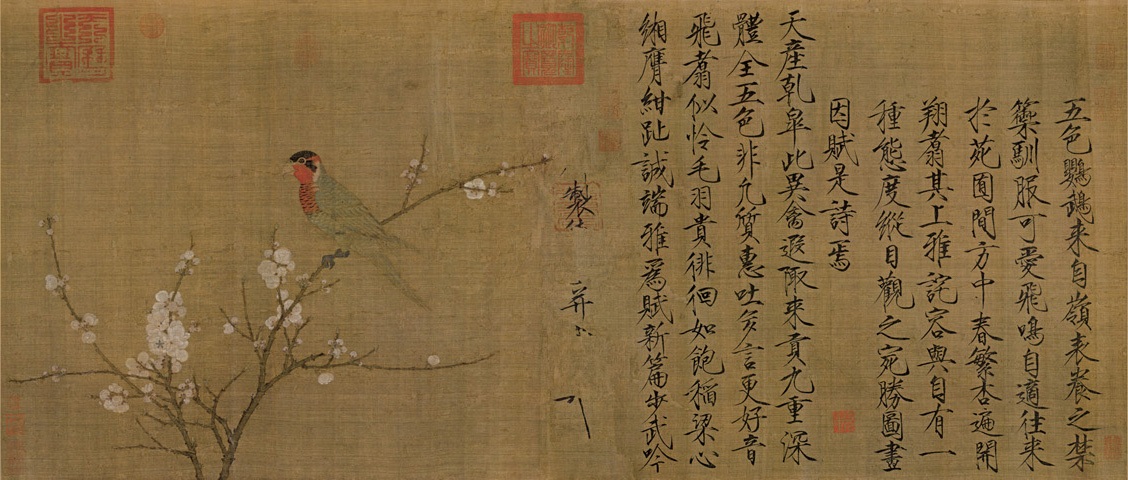 五色鸚鵡来自嶺表養之禁
籞馴服可愛飛鳴自適往来
於苑囿間方中春繁杏遍開
翔翥其上雅詫容與自有一
種態度縱目觀之宛勝圖畫
因賦是詩焉
天産乾皐此異禽遐陬来貢九重深
體全五色非凡質惠吐多言更好音
飛翥似怜毛羽貴徘徊如飽稻粱心
緗膺紺趾誠端雅爲賦新篇步武吟
製